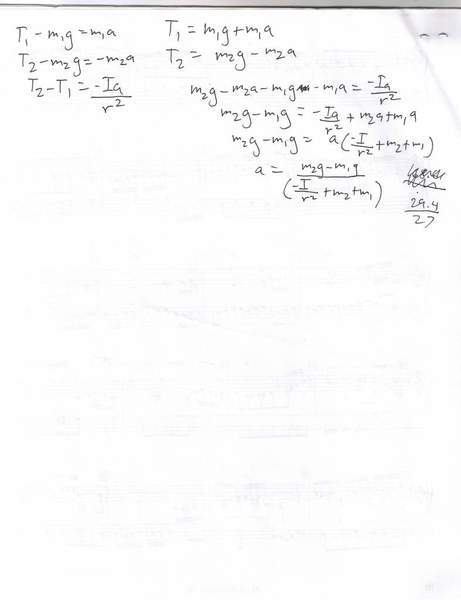 T₁ - m₁g = m₁a
T₂ - m₂g = -m₂a
T₂ - T₁ = -Ia/r²
T₁ = m₁g + m₁a
T₂ = m₂g - m₂a
m₂g - m₂a - m₁g - m₁a = -Ia/r²
m₂g - m₁g = -Ia/r² + m₂a + m₁a
m₂g - m₁g = a(-I/r² + m₂ + m₁)
a = m₂g - m₁g/(-I/r² + m₂ + m₁)
29.4/27